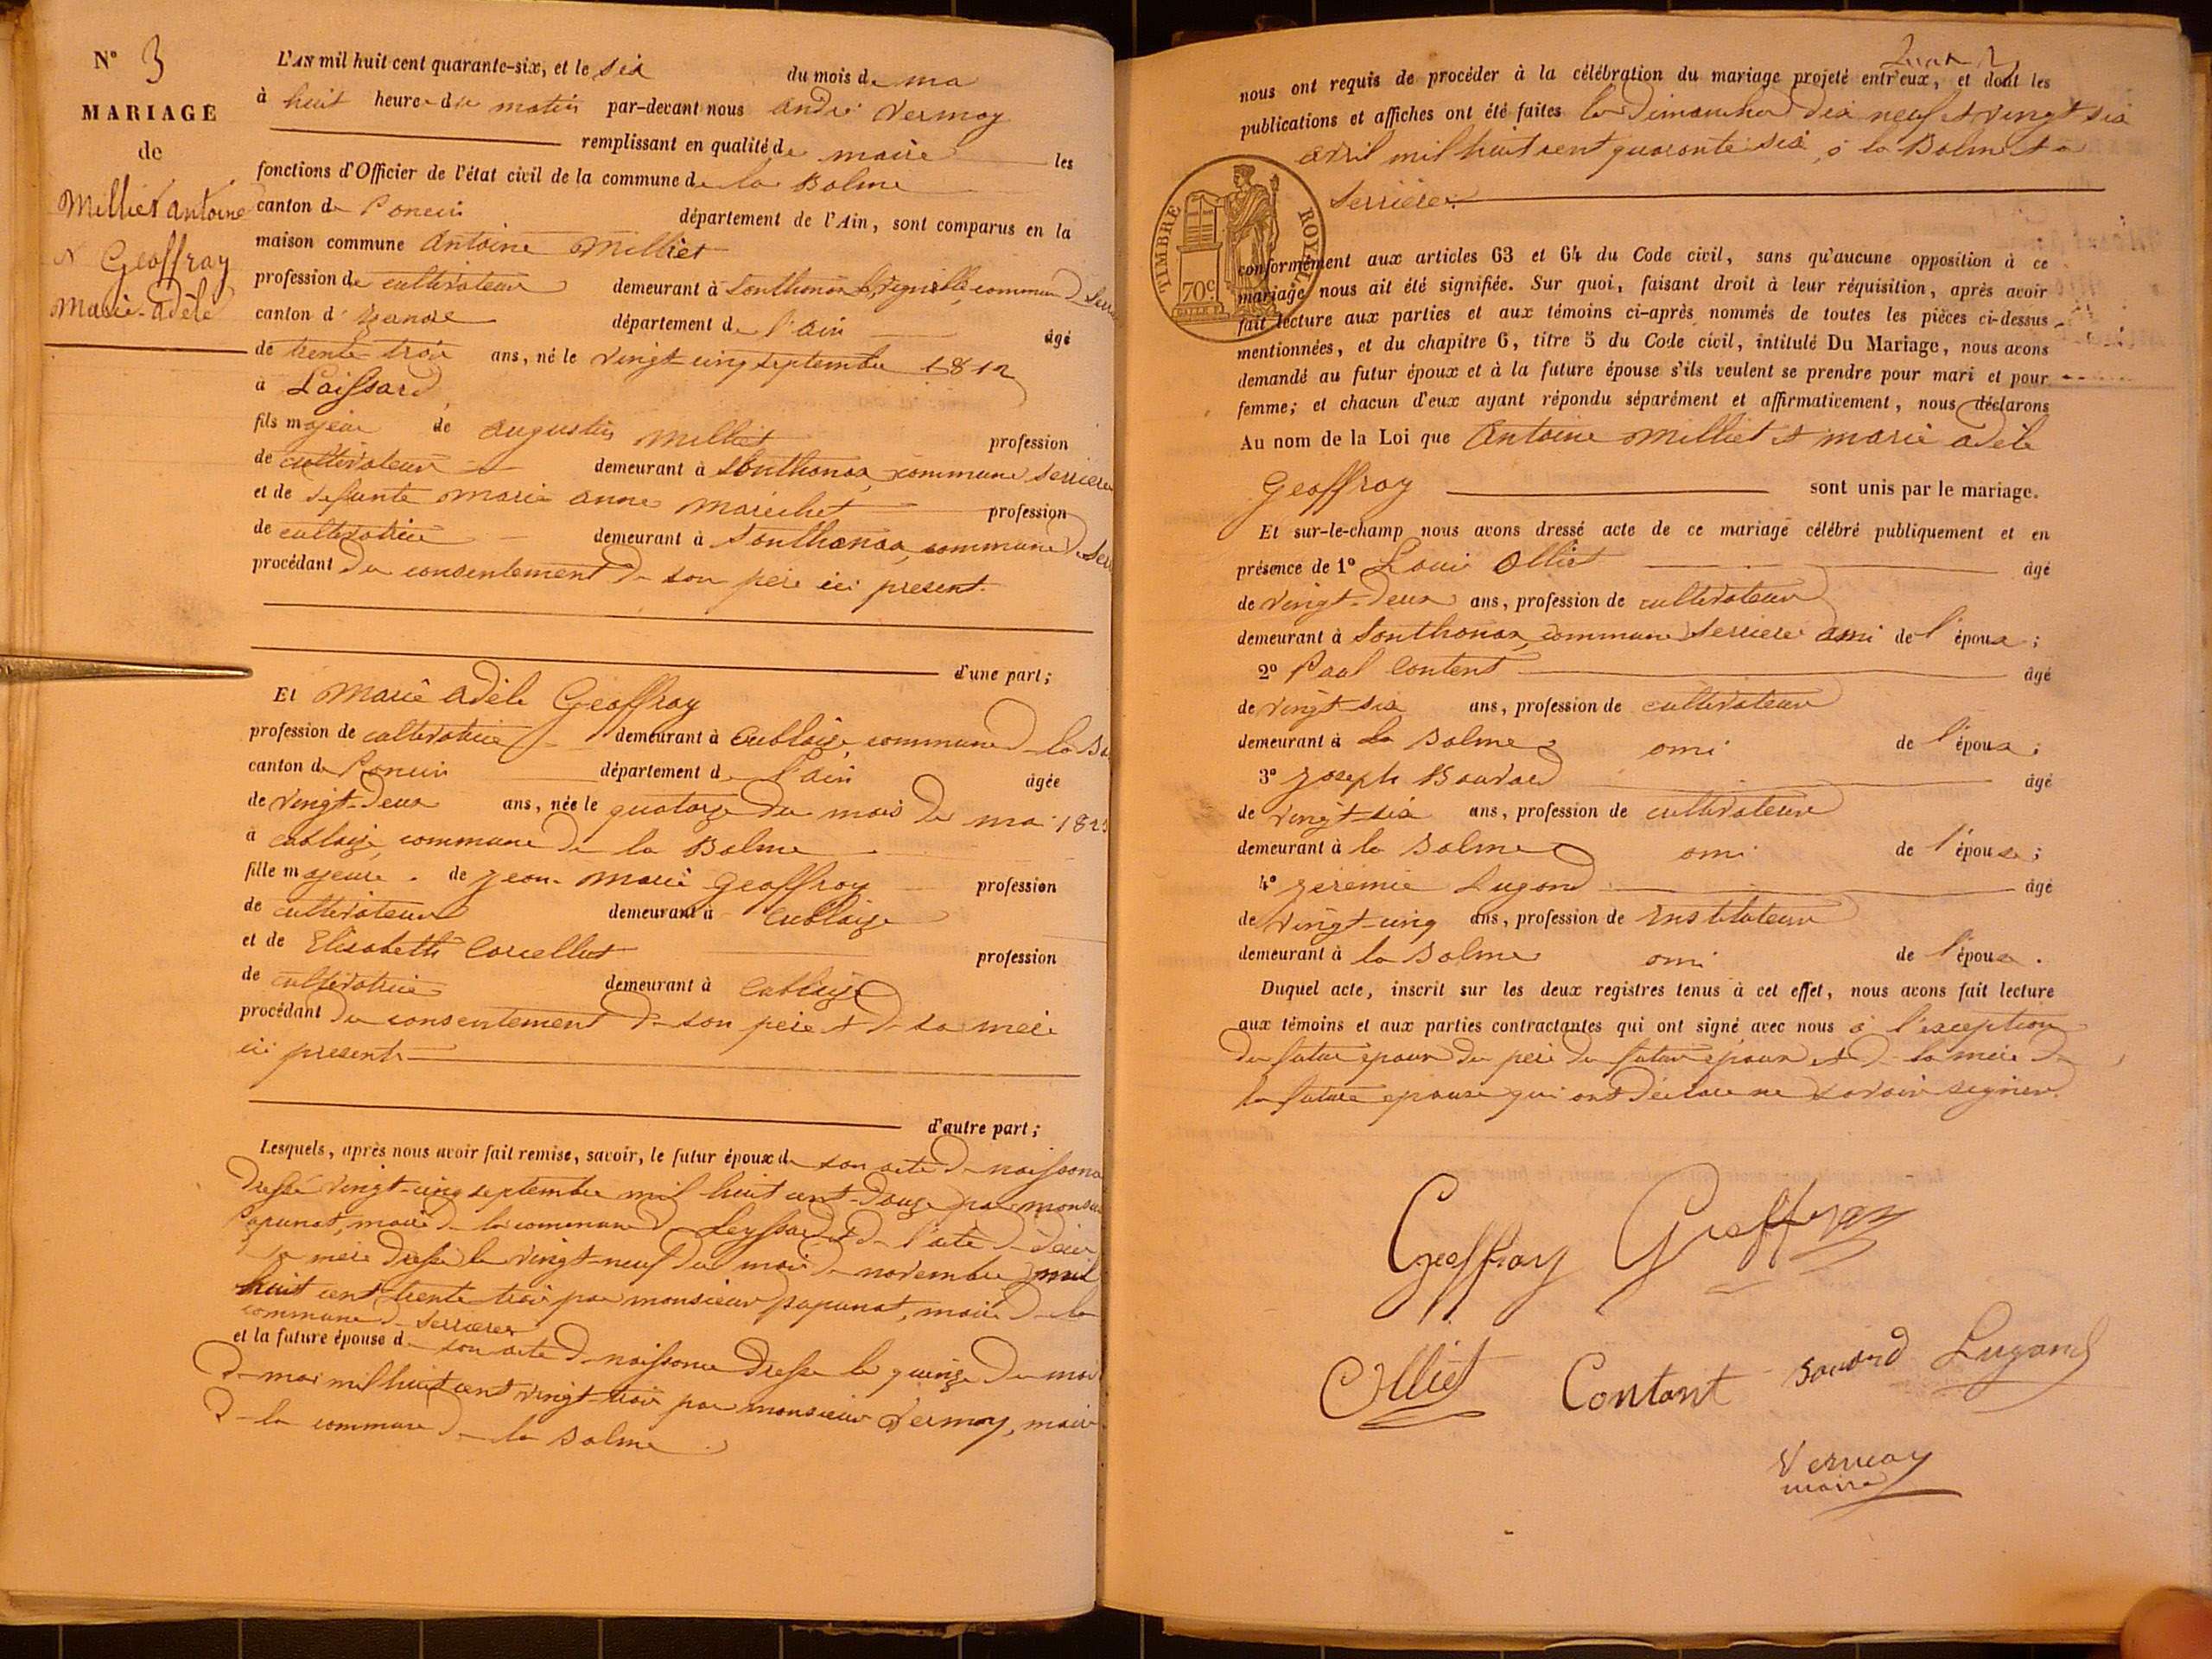 N° 3
MARIAGE
de
Milliet antoine
& Geoffray
Marie-adèle
L'AN mil huit cent quarante-six, et le six du mois de mai
à huit heure du matin par-devant nous andré Vermay
remplissant en qualité de maire les
fonctions d'Officier de l'état civil de la commune de la Balme
canton de Poncin département de l'Ain, sont comparus en la
maison commune Antoine Milliet
profession de cultivateur demeurant à Sonthonax commune
canton d' département de l'ain âgé
de trente trois ans, né le vingt-cinq septembre 1812
à Laissard
fils majeur de augustin Milliet profession
de cultivateur demeurant à Sonthonax, commune serriere
et de defunte marie anne Marechet profession
de cultivatrice demeurant à Sonthonax, commune de
procédant du consentement de son père ici present.
d'une part;
Et Marie adèle Geoffray
profession de cultivatrice demeurant à Cublaize, commune de la
canton de Poncin département de l'ain âgée
de vingt-deux ans, née le quatorze du mois de mai
à Cublaize, commune de la Balme
fille majeure de Jean-Marie Geoffray profession
de cultivateur demeurant à Cublaize
et de Elisabeth Corcellut profession
de cultivatrice demeurant à Cublaize
procédant du consentement de son père & de sa mère
ici present
d'autre part;
Lesquels, après nous avoir fait remise, savoir, le futur époux de son acte de naissance
dressé vingt-cinq septembre mil huit cent-douze par monsieur
Papunat, maire de la commune de Leyssard & de l'acte de décè
de sa mère dressé le vingt-neuf du mois de novembre mil
huit cent-trente trois par monsieur papunat, maire de la
commune de serrieres
et la future épouse de son acte de naissance dressé le quinze du moi
de mai mil huit cent vingt-trois par monsieur Vermay, maire
de la commune de la Balme
nous ont requis de procéder à la célébration du mariage projeté entr'eux, et dont les
publications et affiches ont été faites les Dimanches dix neuf & vingt six
avril mil huit cent quarante six, à la Balme & a
Serrieres
TIMBRE ROYAL
70c
conformément aux articles 63 et 64 du Code civil, sans qu'aucune opposition à ce
mariage nous ait été signifiée. Sur quoi, faisant droit à leur réquisition, après avoir
fait lecture aux parties et aux témoins ci-après nommés de toutes les pièces ci-dessus
mentionnées, et du chapitre 6, titre 5 du Code civil, intitulé Du Mariage, nous avons
demandé au futur époux et à la future épouse s'ils veulent se prendre pour mari et pour
femme; et chacun d'eux ayant répondu séparément et affirmativement, nous déclarons
Au nom de la Loi que Antoine Milliet & marie adèle
Geoffray sont unis par le mariage.
Et sur-le-champ nous avons dressé acte de ce mariage célébré publiquement et en
présence de 1° Louis Olliet âgé
de vingt-deux ans, profession de cultivateur
demeurant à Sonthonax, commune serriere ami de l'époux;
2° Paul Content âgé
de vingt-six ans, profession de cultivateur
demeurant à la Balme ami de l'époux;
3° Joseph Bouvard âgé
de vingt-six ans, profession de cultivateur
demeurant à la Balme ami de l'épouse;
4° Jérémie Lugand âgé
de vingt-cinq ans, profession de Instituteur
demeurant à la Balme ami de l'épouse.
Duquel acte, inscrit sur les deux registres tenus à cet effet, nous avons fait lecture
aux témoins et aux parties contractantes qui ont signé avec nous à l'exception
du futur époux du père du futur époux & de la mère de
la future épouse qui ont déclaré ne savoir signer.
Geoffray Geoffray
Olliet Contant Bouvard Lugand
Vermay
maire